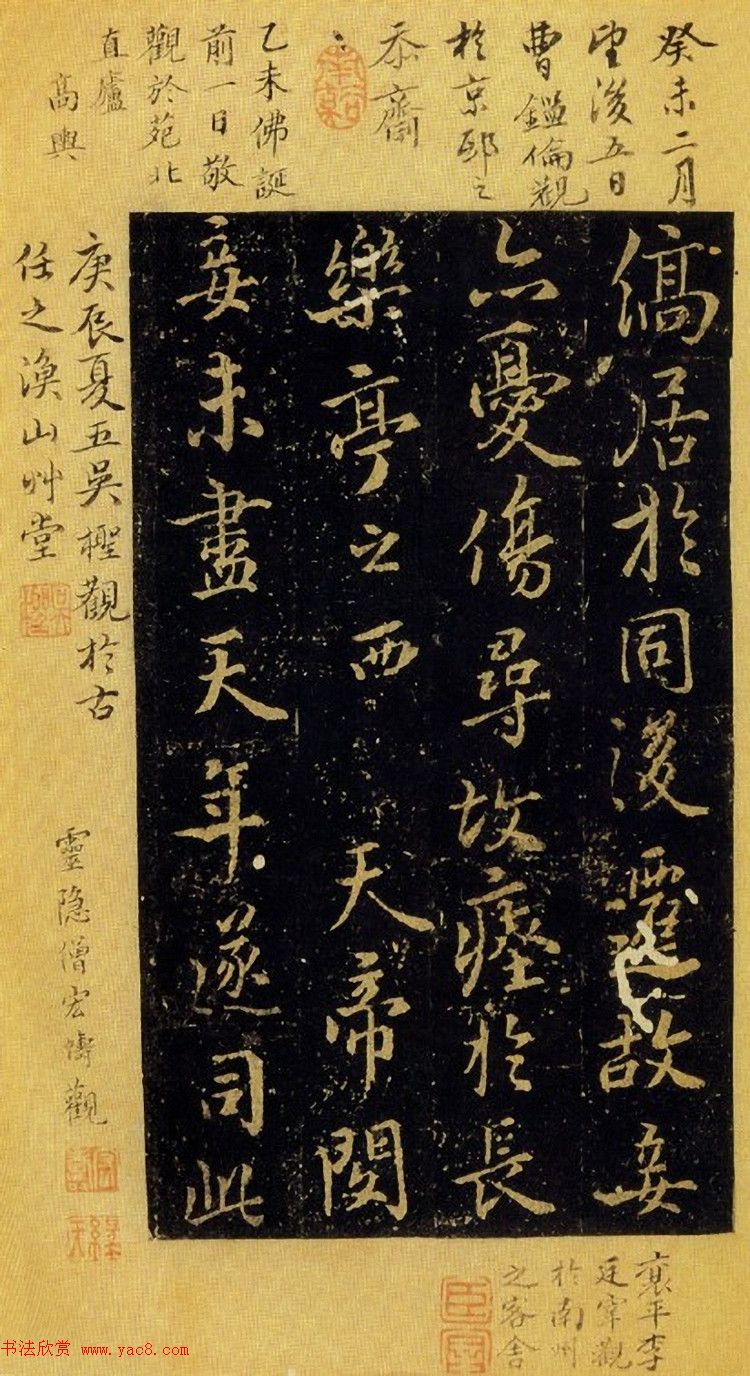 癸未二月
望後五日
曹鑑倫觀
於京邸之
忝齋
乙未佛誕
前一日敬
觀於苑北
直廬
高輿
縞居於同後遷故妾
亦憂傷尋故瘞於長
樂亭之西 天帝閔
妾未盡天年遂司此
庚辰夏五吳檉觀於古
任之漁山艸堂
靈隐僧宏濤觀
襄平李
廷宰觀
於南州
之客舍
书法欣赏 www.yac8.com